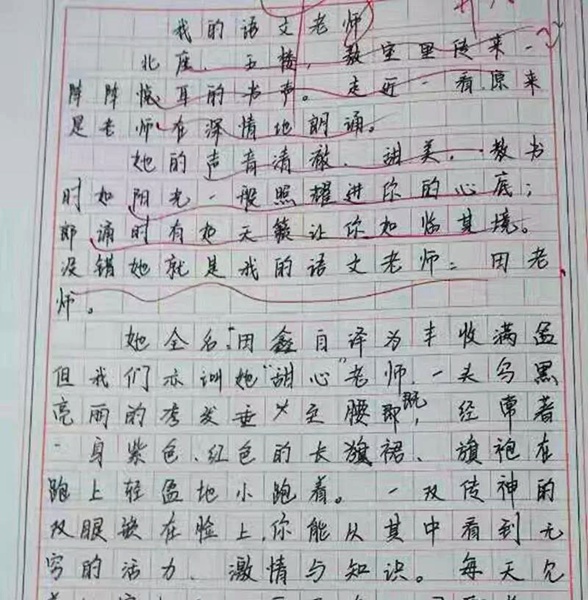 我的语文老师
北座,五楼,教室里传来一
阵阵悦耳的书声。走近一看,原来
是老师在深情地朗诵。
她的声音清澈、甜美,教书
时如阳光一般照耀进你的心底;
郎诵时有如天籁让你如临其境。
没错她就是我的语文老师:田老
师。
她全名"田鑫自译为丰收满盈
但我们亦训她"甜心"老师,一头乌黑
亮丽的秀发垂至腰际,经常着
一身紫色、红色的长旗裙、旗袍在
跑上轻盈地小跑着。一双传神的
双眼嵌在脸上,你能从其中看到无
穷的活力、激情与知识。每天